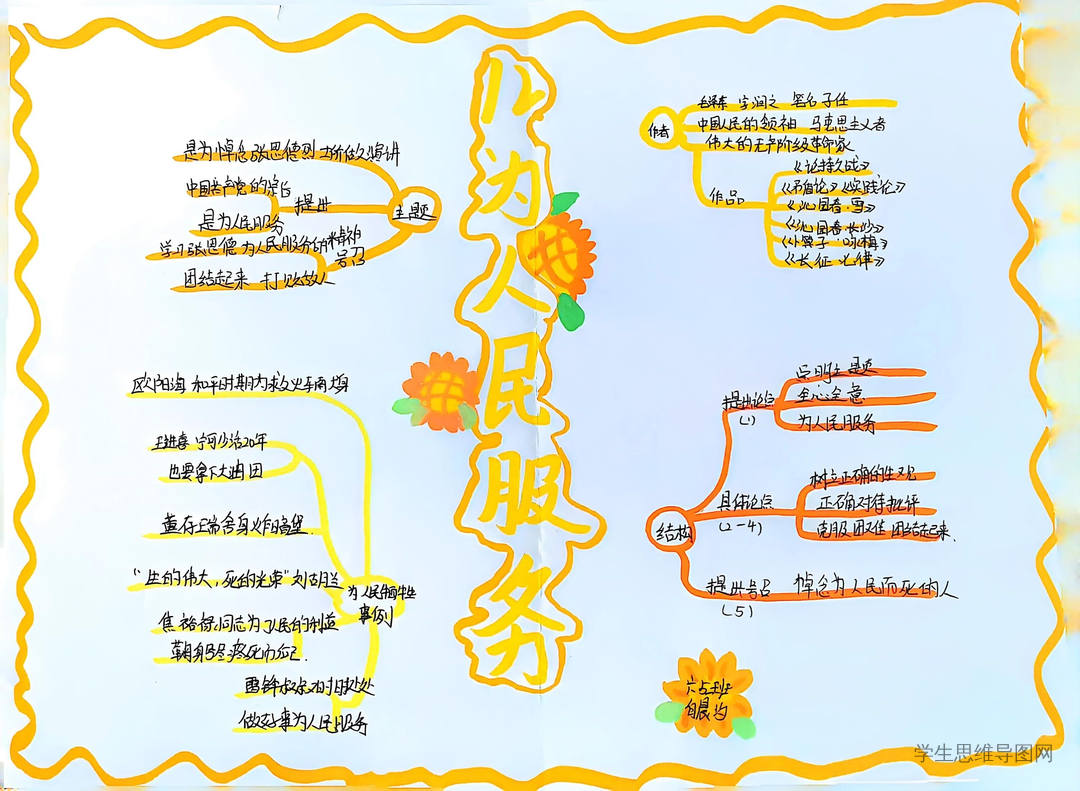 为人民服务
主题
是为悼念张思德烈士所做演讲
提出
中国共产党的宗旨
是为人民服务
号召
学习张思德为人民服务的精神
团结起来 打败敌人
作者
毛泽东 字润之 笔名子任
中国人民的领袖 马克思主义者
伟大的无产阶级革命家
作品
《论持久战》
《矛盾论》《实践论》
《沁园春·雪》
《沁园春·长沙》
《卜算子·咏梅》
《长征·七律》
为人民牺牲
事例
欧阳海 和平时期为救火车而
王进喜 宁可少活20年
也要拿下大油田
董存瑞舍身炸碉堡.
“生的伟大，死的光荣”刘胡兰
焦裕禄同志为了人民的利益
鞠躬尽瘁死而后已.
雷锋叔叔时时处处
做好事为人民服务
结构
提出论点
(1)
主题
全心全意
为人民服务
具体论点
(2-4)
树立正确的生
正确对待批评
克服困难 团结起来.
提出号召
(5)
悼念为人民而死的人
六班
学生思维导图网